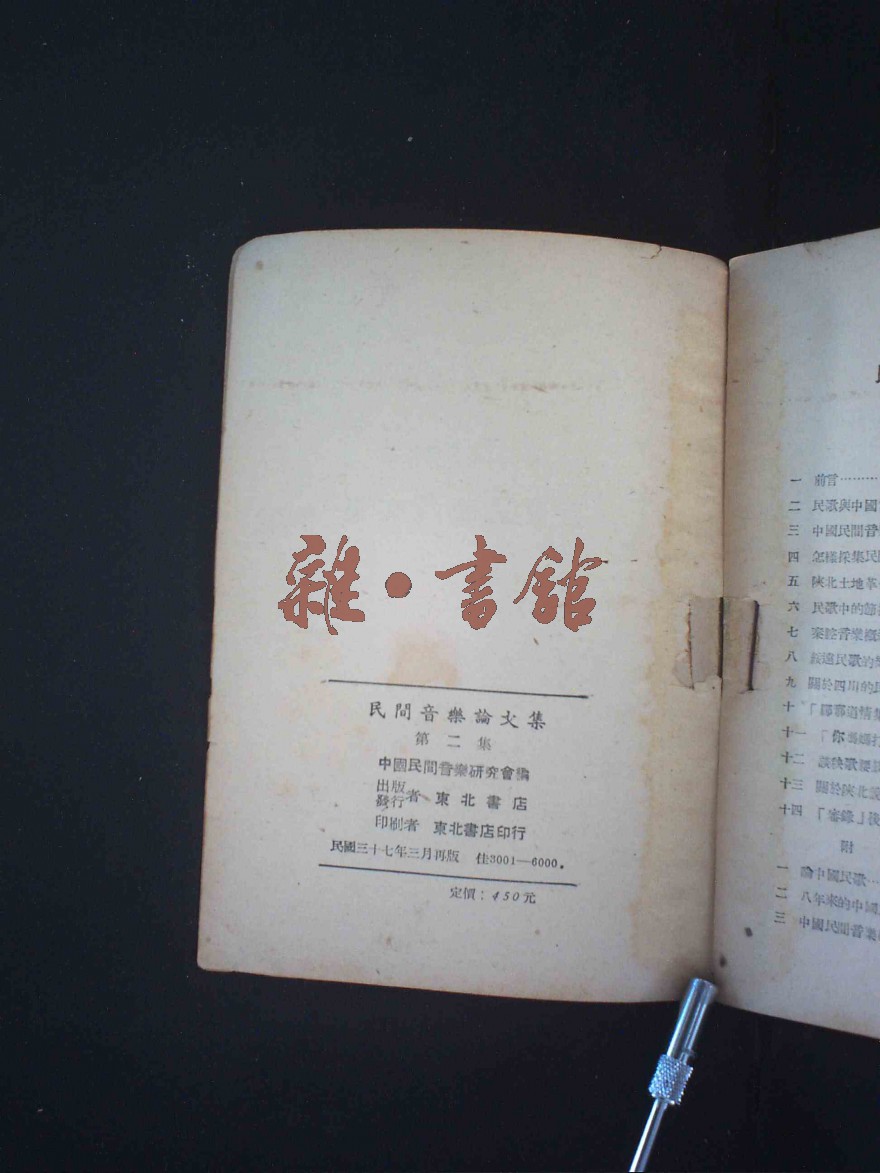 雜·書館
民間音樂論文集
第二集
中國民間音樂研究會編
出版
發行者 東北書店
印刷者 東北書店印行
民國三十七年三月再版 佳3001—6000.
定價:450元
一 前言
二 民歌與中國
三 中國民間音
四 怎樣採集民
五 陝北土地革
六 民歌中的節
七 秦腔音樂概
八 綏遠民歌的
九 關於四川的民
十 「郿鄠道情
十一 「你媽媽打
十二 談秧歌腰
十三 關於陝北說
十四 「審錄」後
附
一 論中國民歌
二 八年來的中國
三 中國民間音樂